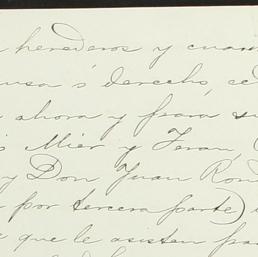 herederos y cuan
ausa ó derecho, ce
ahora y para su
Mier y Teran,
y Don Juan Rom
por tercera parte)
que le asisten pa